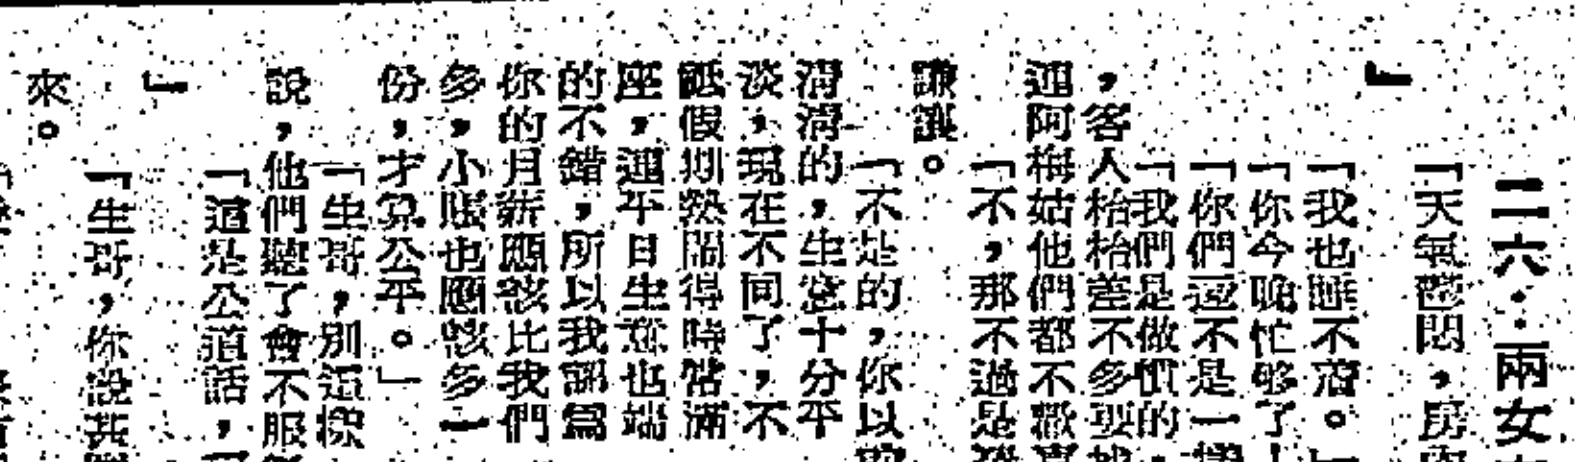 二六：兩女
「天氣悶，房
」
「我也睡不着。
「你今晚忙够了
「你們還不是一樣
「我們是做慣的，
，客人枱枱差不多要
連阿梅姑他們都不歡喜
「不，那不過是
謙讓。
「不是的，你以
清清的，生意十分平
淡，現在不同了，不
假期熱鬧得時常滿
座，連平日生意也端
的不錯，所以我認爲
你的月薪應該比我們
多，小賬也應該多一
份，才算公平。」
「生哥，別這樣
說，他們聽了會不服
「這是公道話，
」
「生哥，你說甚
來。